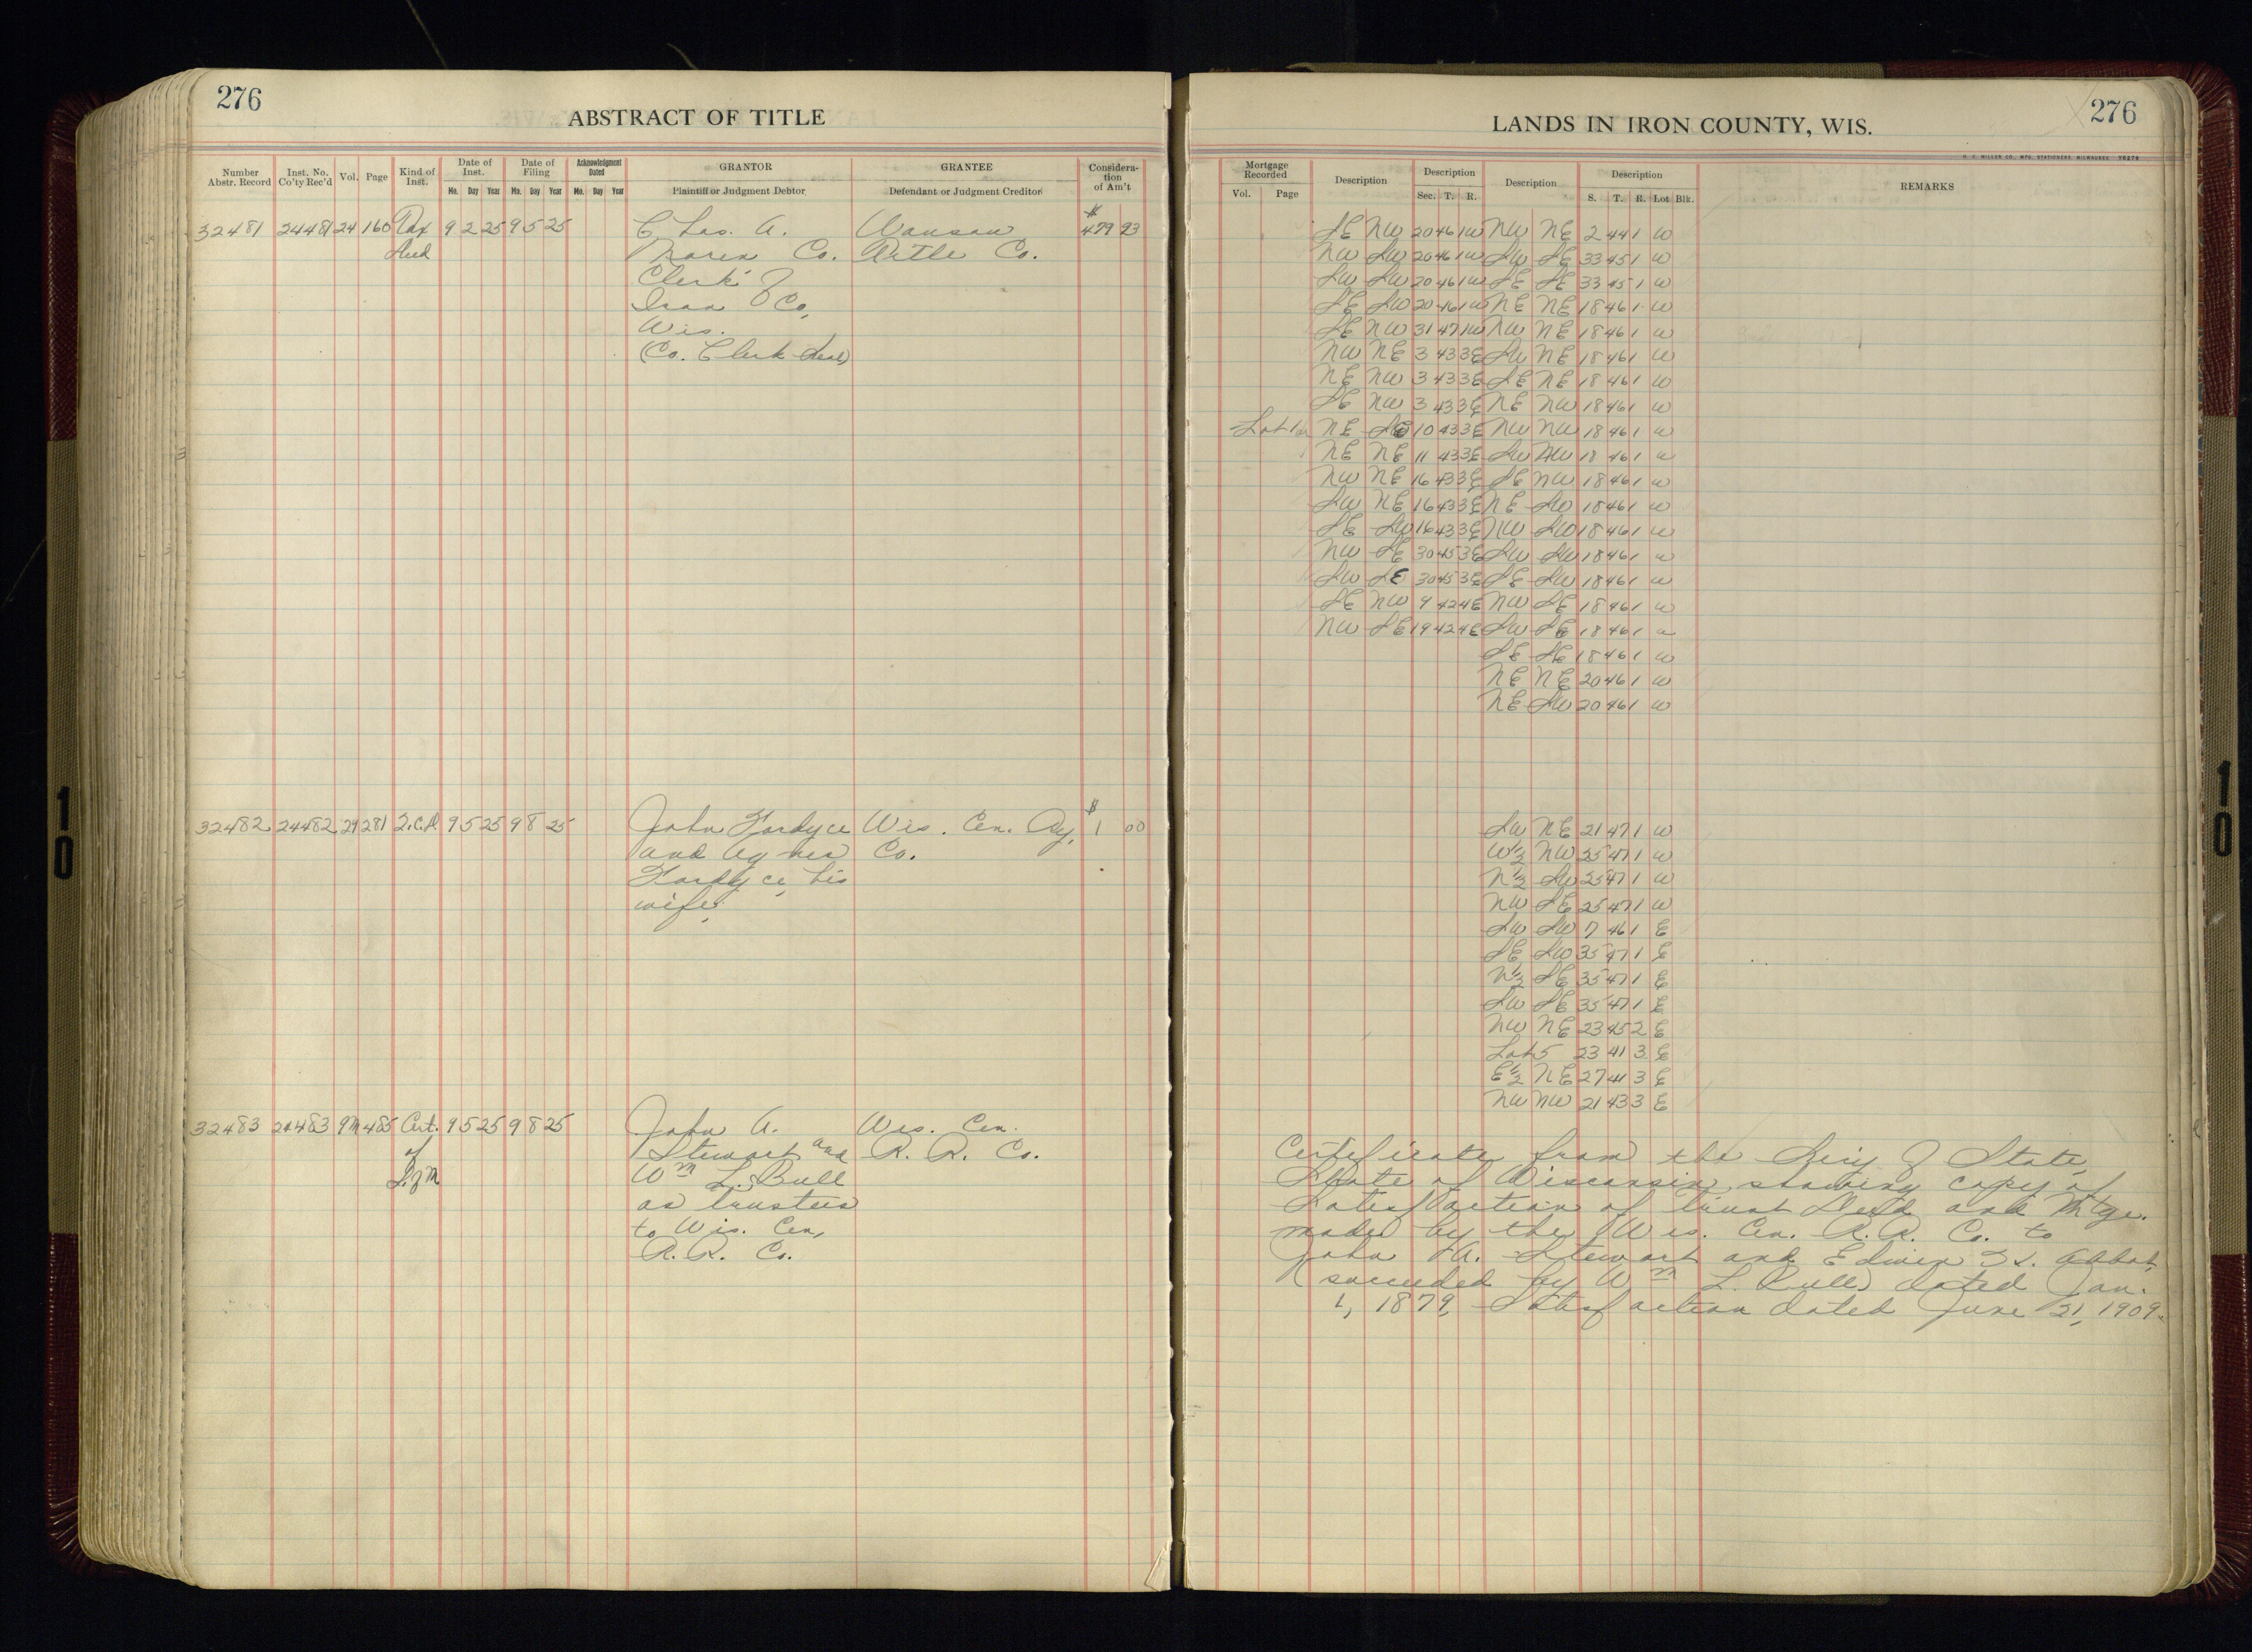 276
ABSTRACT OF TITLE
Number Abstr. Record
Inst. No. Co'ty Rec'd
Vol.
Page
Kind of Inst.
Date of Inst.
Mo. Day Year
Date of Filing
Mo. Day Year
Acknowledgment Dated
Mo. Day Year
GRANTOR
Plaintiff or Judgment Debtor
GRANTEE
Defendant or Judgment Creditor
Considera-
tion
of Am't
32481 24481 24 160 Tax 9 2 25 9 5 25 Chas. A. Wausau $ 479 93
Deed Co. Title Co.
Clerk of
Iron Co,
Wis.
(Co. Clerk Seal)
32482 24482 29 281 2.C.D. 9 5 25 9 8 25 John Fordyce Wis. Cen. Ry. $ 1 00
and Agnes Co.
Fordyce, his
wife,
32483 24483 9M 485 Cert. 9 5 25 9 8 25 John A. Wis. Cen.
of Stewart and R. R. Co.
Wm L. Bull
as trustees
to Wis. Cen,
R. R. Co.
276
LANDS IN IRON COUNTY, WIS.
H. C. MILLER CO. MFG. STATIONERS, MILWAUKEE
Mortgage Recorded
Vol. Page
Description
Description
Sec. T. R.
Description
Description
S. T. R. Lot Blk.
REMARKS
SE NW 20 46 1W NW NE 2 44 1 W
NW SW 20 46 1W SW SE 33 45 1 W
SW SW 20 46 1W SE SE 33 45 1 W
SE SW 20 46 1W NE NE 18 46 1 W
SE NW 31 47 1W NW NE 18 46 1 W
NW NE 3 43 3E SW NE 18 46 1 W
NE NW 3 43 3E SE NE 18 46 1 W
SE NW 3 43 3E NE NW 18 46 1 W
Lot 1 NE SE 10 43 3E NW NW 18 46 1 W
NE NE 11 43 3E SW NW 18 46 1 W
NW NE 16 43 3E SE NW 18 46 1 W
SW NE 16 43 3E NE SW 18 46 1 W
SE SW 16 43 3E NW SW 18 46 1 W
NW SE 30 45 3E SW SW 18 46 1 W
SW SE 30 45 3E SE SW 18 46 1 W
SE NW 9 42 4E NW SE 18 46 1 W
NW SE 19 42 4E SW SE 18 46 1 W
SE SE 18 46 1 W
NE NE 20 46 1 W
NE SW 20 46 1 W
SW NE 21 47 1 W
W½ NW 25 47 1 W
N½ SW 25 47 1 W
NW SE 25 47 1 W
SW SW 7 46 1 E
SE SW 35 47 1 E
N½ SE 35 47 1 E
SW SE 35 47 1 E
NW NE 23 45 2 E
Lot 5 23 41 3 E
E½ NE 27 41 3 E
NW NW 21 43 3 E
Certificate from the Secy of State,
State of Wisconsin, showing copy of
Satisfaction of Trust Deed and Mtge.
made by the Wis. Cen. R. R. Co. to
John A. Stewart and Edwin H. Abbot,
(succeeded by Wm L. Bull) dated Jan.
1, 1879, Satisfaction dated June 21, 1909.